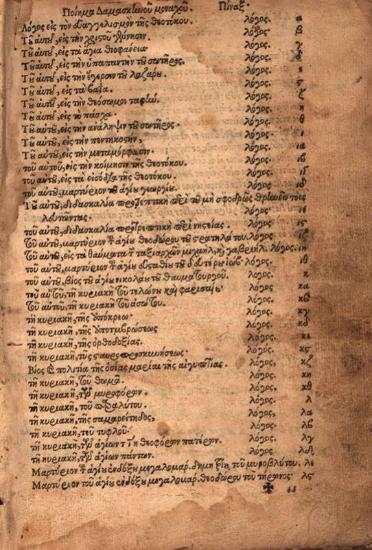 Ποίημα Δαμασκηνοῦ μοναχοῦ. Πίναξ
Λόγος εἰς τὸν εὐαγγελισμὸν τῆς θεοτόκου. λόγος. α
Τοῦ αὐτοῦ, εἰς τὴν χριστοῦ γέννησιν. λόγος. β
Τοῦ αὐτοῦ, εἰς τὰ ἅγια θεοφάνεια λόγος. γ
Τοῦ αὐτοῦ, εἰς τὴν ὑπαπαντὴν τοῦ σωτῆρος. λόγος.
Τοῦ αὐτοῦ, εἰς τὴν ἔγερσιν τοῦ λαζάρου. λόγος.
Τοῦ αὐτοῦ, εἰς τὰ βαΐα. λόγος.
Τοῦ αὐτοῦ, εἰς τὴν θεόσωμον ταφήν. λόγος.
Τοῦ αὐτοῦ, εἰς τὸ πάσχα λόγος.
Τοῦ αὐτοῦ, εἰς τὴν ἀνάληψιν τοῦ σωτῆρος. λόγος.
Τοῦ αὐτοῦ, εἰς τὴν πεντηκοστήν. λόγος.
Τοῦ αὐτοῦ, εἰς τὴν μεταμόρφωσιν. λόγος.
τοῦ αὐτοῦ, εἰς τὴν κοίμησιν τῆς θεοτόκου. λόγος.
τοῦ αὐτοῦ, εἰς τὰ εἰσόδια τῆς θεοτόκου. λόγος.
τοῦ αὐτοῦ, μαρτύριον τοῦ ἁγίου γεωργίου. λόγος. ιδ
Τοῦ αὐτοῦ, διδασκαλία προτρεπτικὴ περὶ τοῦ μὴ σφοδρῶς θρηνεῖν τοὺς
τελευτῶντας. λόγος. ιε
τοῦ αὐτοῦ, διδασκαλία προτρεπτικὴ περὶ νηστείας. λόγος. ις
τοῦ αὐτοῦ, μαρτύριον τοῦ ἁγίου θεοδώρου τοῦ στρατηλάτου. λόγος ιζ
τοῦ αὐτοῦ, εἰς τὰ θαύματα τῶν ταξιαρχῶν μιχαὴλ, καὶ γαβριήλ. λόγος. ιη
τοῦ αὐτοῦ, μαρτύριον τοῦ ἁγίου δημητρίου λόγος. ιθ
τοῦ αὐτοῦ, βίος τοῦ ἁγίου νικολάου τοῦ θαυματουργοῦ. λόγος. κ
τοῦ αὐτοῦ, τῇ κυριακῇ τοῦ τελώνου καὶ φαρισαίου λόγος κα
τοῦ αὐτοῦ, τῇ κυριακῇ τοῦ ἀσώτου. λόγος. κβ
τῇ κυριακῇ, τῆς ἀπόκρεω. λόγος. κγ
τῇ κυριακῇ, τῆς λόγος. κδ
τῇ κυριακῇ, τῆς ὀρθοδοξίας. λόγος. κε
τῇ κυριακῇ, τῆς σταυροπροσκυνήσεως. λόγος. κς
Βίος καὶ πολιτεία τῆς ὁσίας μαρίας τῆς αἰγυπτίας. λόγος. κζ
τῇ κυριακῇ, τοῦ θωμᾶ. λόγος. κη
τῇ κυριακῇ, τῶν μυροφόρων. λόγος. κθ
τῇ κυριακῇ, τοῦ παραλύτου. λόγος. λ
τῇ κυριακῇ, τῆς σαμαρείτιδος. λόγος. λα
τῇ κυριακῇ, τοῦ τυφλοῦ. λόγος. λβ
τῇ κυριακῇ, τῶν ἁγίων τιη θεοφόρων πατέρων. λόγος. λγ
τῇ κυριακῇ, τῶν ἁγίων πάντων. λόγος. λδ
Μαρτύριον τοῦ ἁγίου ἐνδόξου μεγαλομάρ. δημητρίου, τοῦ μυροβλύτου. λε
Μαρτύριον τοῦ ἁγίου ἐνδόξου μεγαλομάρ. θεοδώρου τοῦ τήρωνος λς